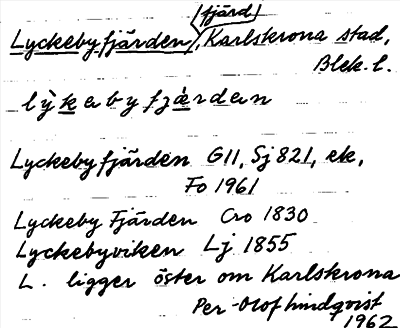 fjärd
Lyckebyfjärden, Karlskrona stad,
Blek. l.
lỳkebyfjærden
Lyckebyfjärden G11, Sj 821, ek,
Fo 1961
Lyckeby Fjärden Cro 1830
Lyckebyviken Lj 1855
L. ligger öster om Karlskrona
Per-Olof Lindqvist
1962